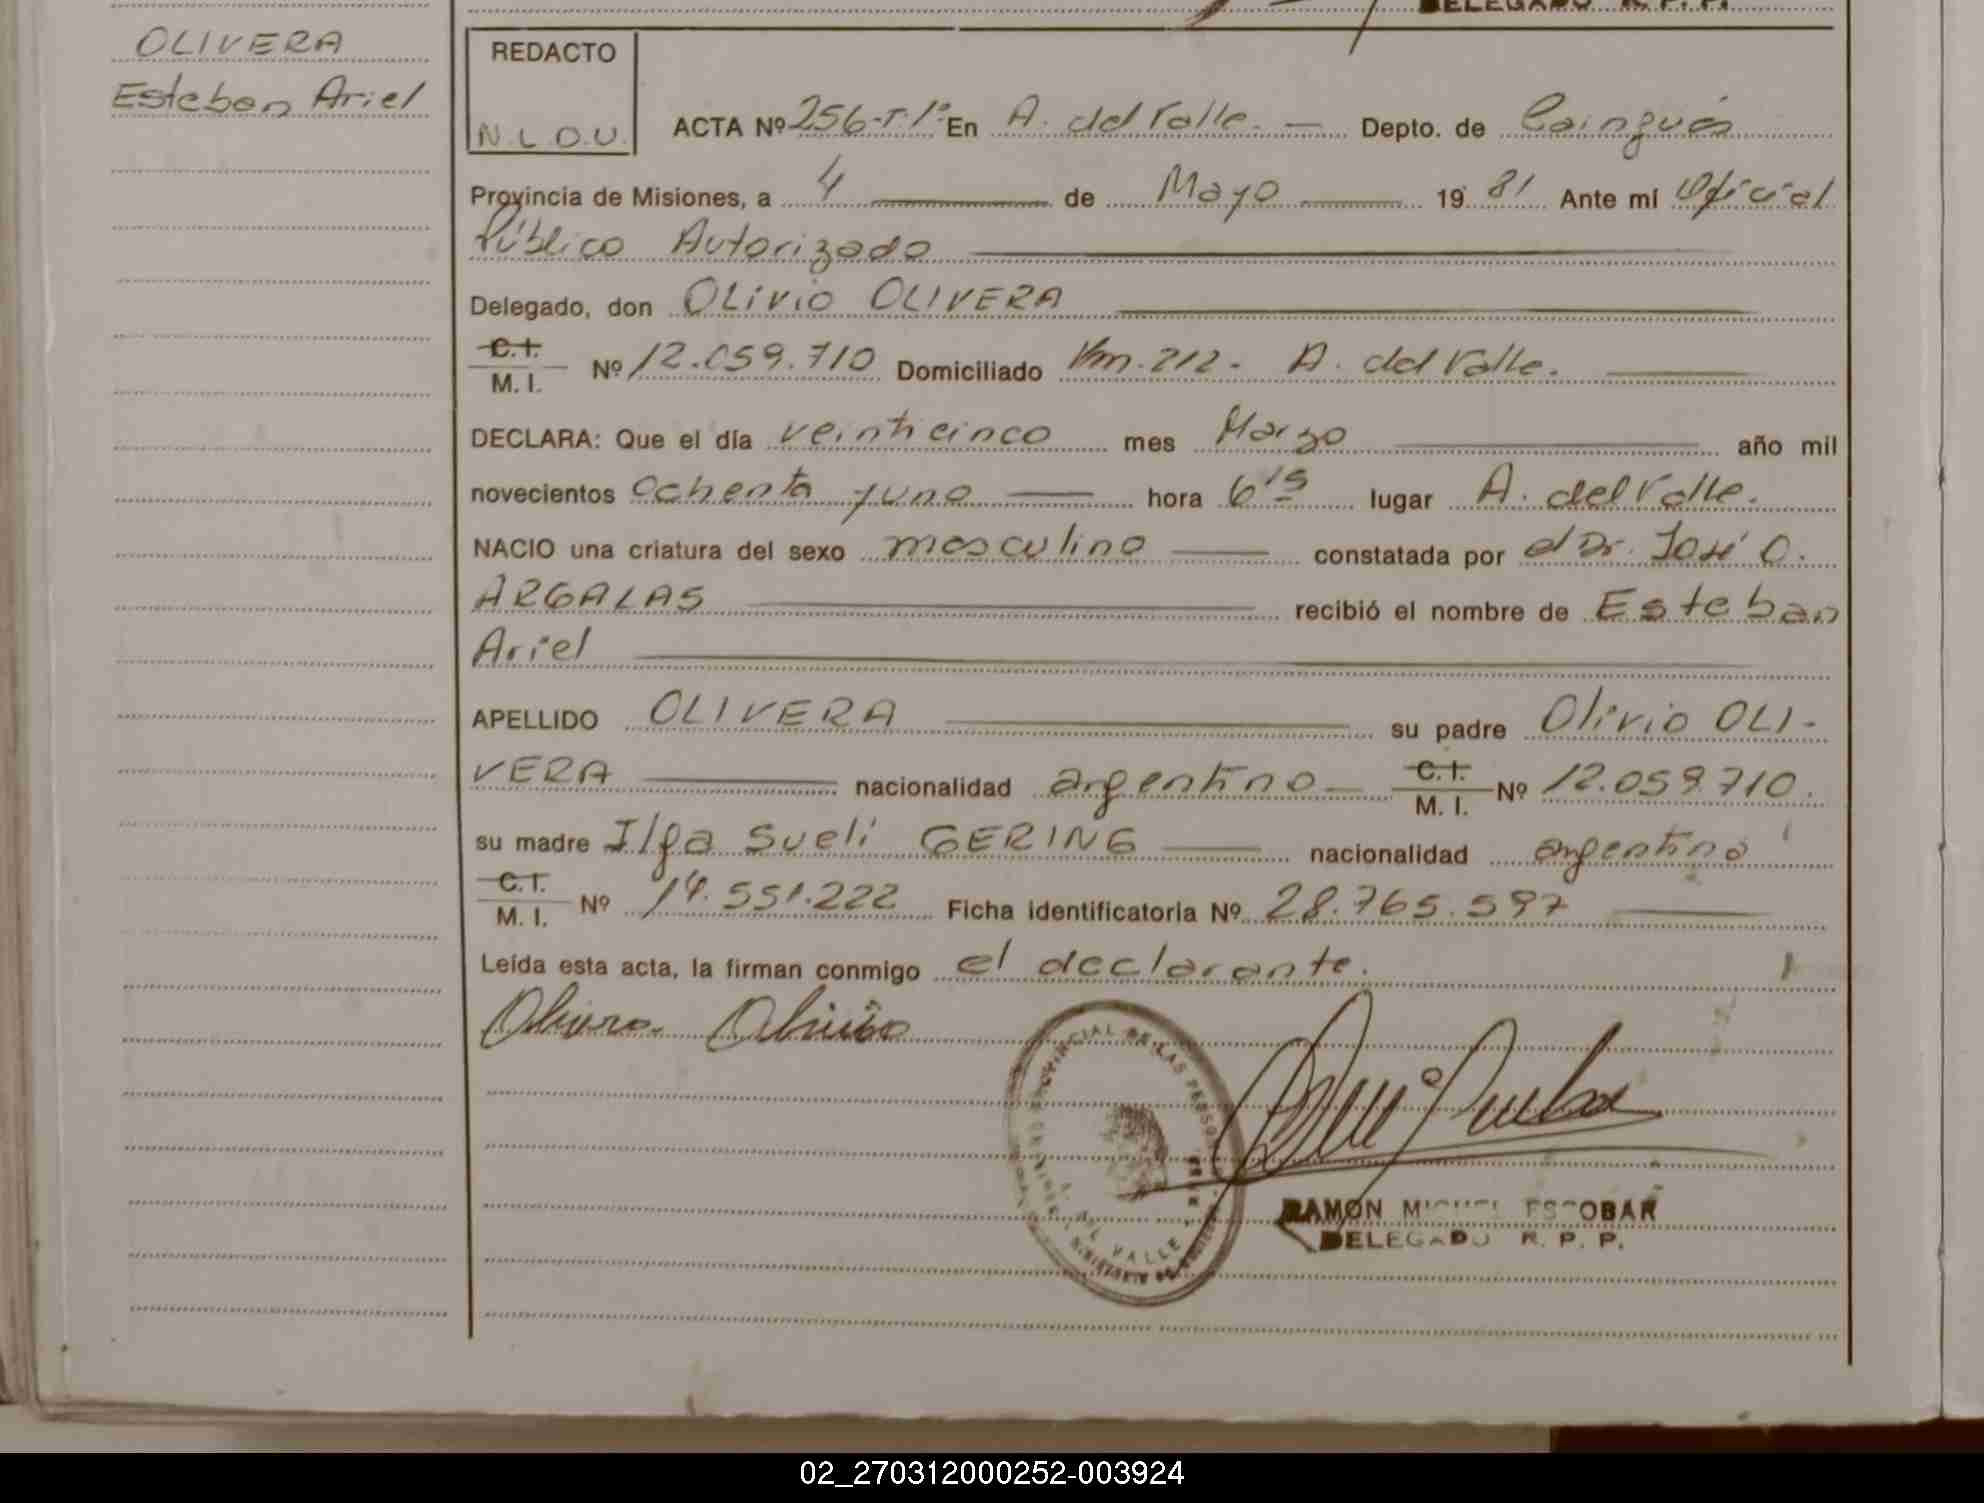 DELEGADO R. P. P.
OLIVERA
Esteban Ariel
REDACTO
N.L.O.U.
ACTA Nº 256-T.1º- En A. del Valle. — Depto. de Cainguás
Provincia de Misiones, a 4 — de Mayo — 19 81 Ante mi Oficial
Público Autorizado —
Delegado, don OLivio OLIVERA —
C.I.
M. I. Nº 12.059.710 Domiciliado Km. 212 - A. del Valle. —
DECLARA: Que el día veinticinco mes Marzo — año mil
novecientos ochenta y uno — hora 6 15 lugar A. del Valle.
NACIO una criatura del sexo masculino — constatada por el Dr. José O.
ARGALAS — recibió el nombre de Esteban
Ariel —
APELLIDO OLIVERA — su padre Olivio OLI-
VERA — nacionalidad argentino — C.I. M. I. Nº 12.059.710.
su madre Ilga Sueli GERING — nacionalidad argentina
C.I.
M. I. Nº 14.551.222 Ficha identificatoria Nº 28.765.597 —
Leída esta acta, la firman conmigo el declarante.
Olivera Olivio
PROVINCIAL DE LAS PERSONAS
A. DEL VALLE
RAMON MIGUEL ESCOBAR
DELEGADO R. P. P.
02_270312000252-003924